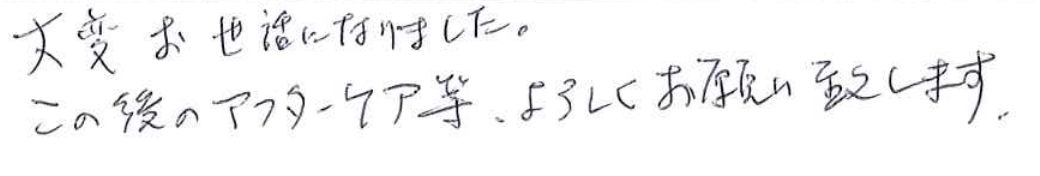 大変お世話になりました。
この後のアフターケア等、よろしくお願い致します.